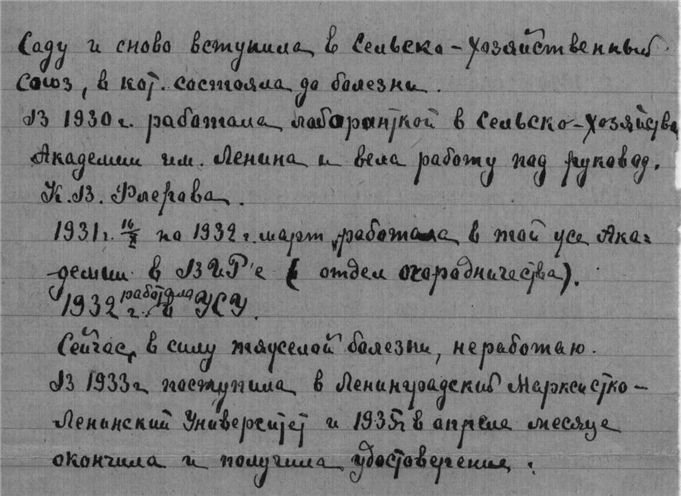 Саду и сново вступила в Сельско-Хозяйственный
союз, в кот. состояла до болезни.
В 1930 г. работала лаборанткой в Сельско-Хозяйства
Академии им. Ленина и вела работу под руковод.
К. В. Флерова.
1931 г. 16/X по 1932 г. март, работала в той же Ака-
демии в ВИР'е (отдел огородничества).
1932 г. работала в УСУ.
Сейчас, в силу тяжелой болезни, неработаю.
В 1933 г поступила в Ленинградский Марксистко-
Ленинский Университет и 1935 г в апреле месяце
окончила и получила удостоверение.